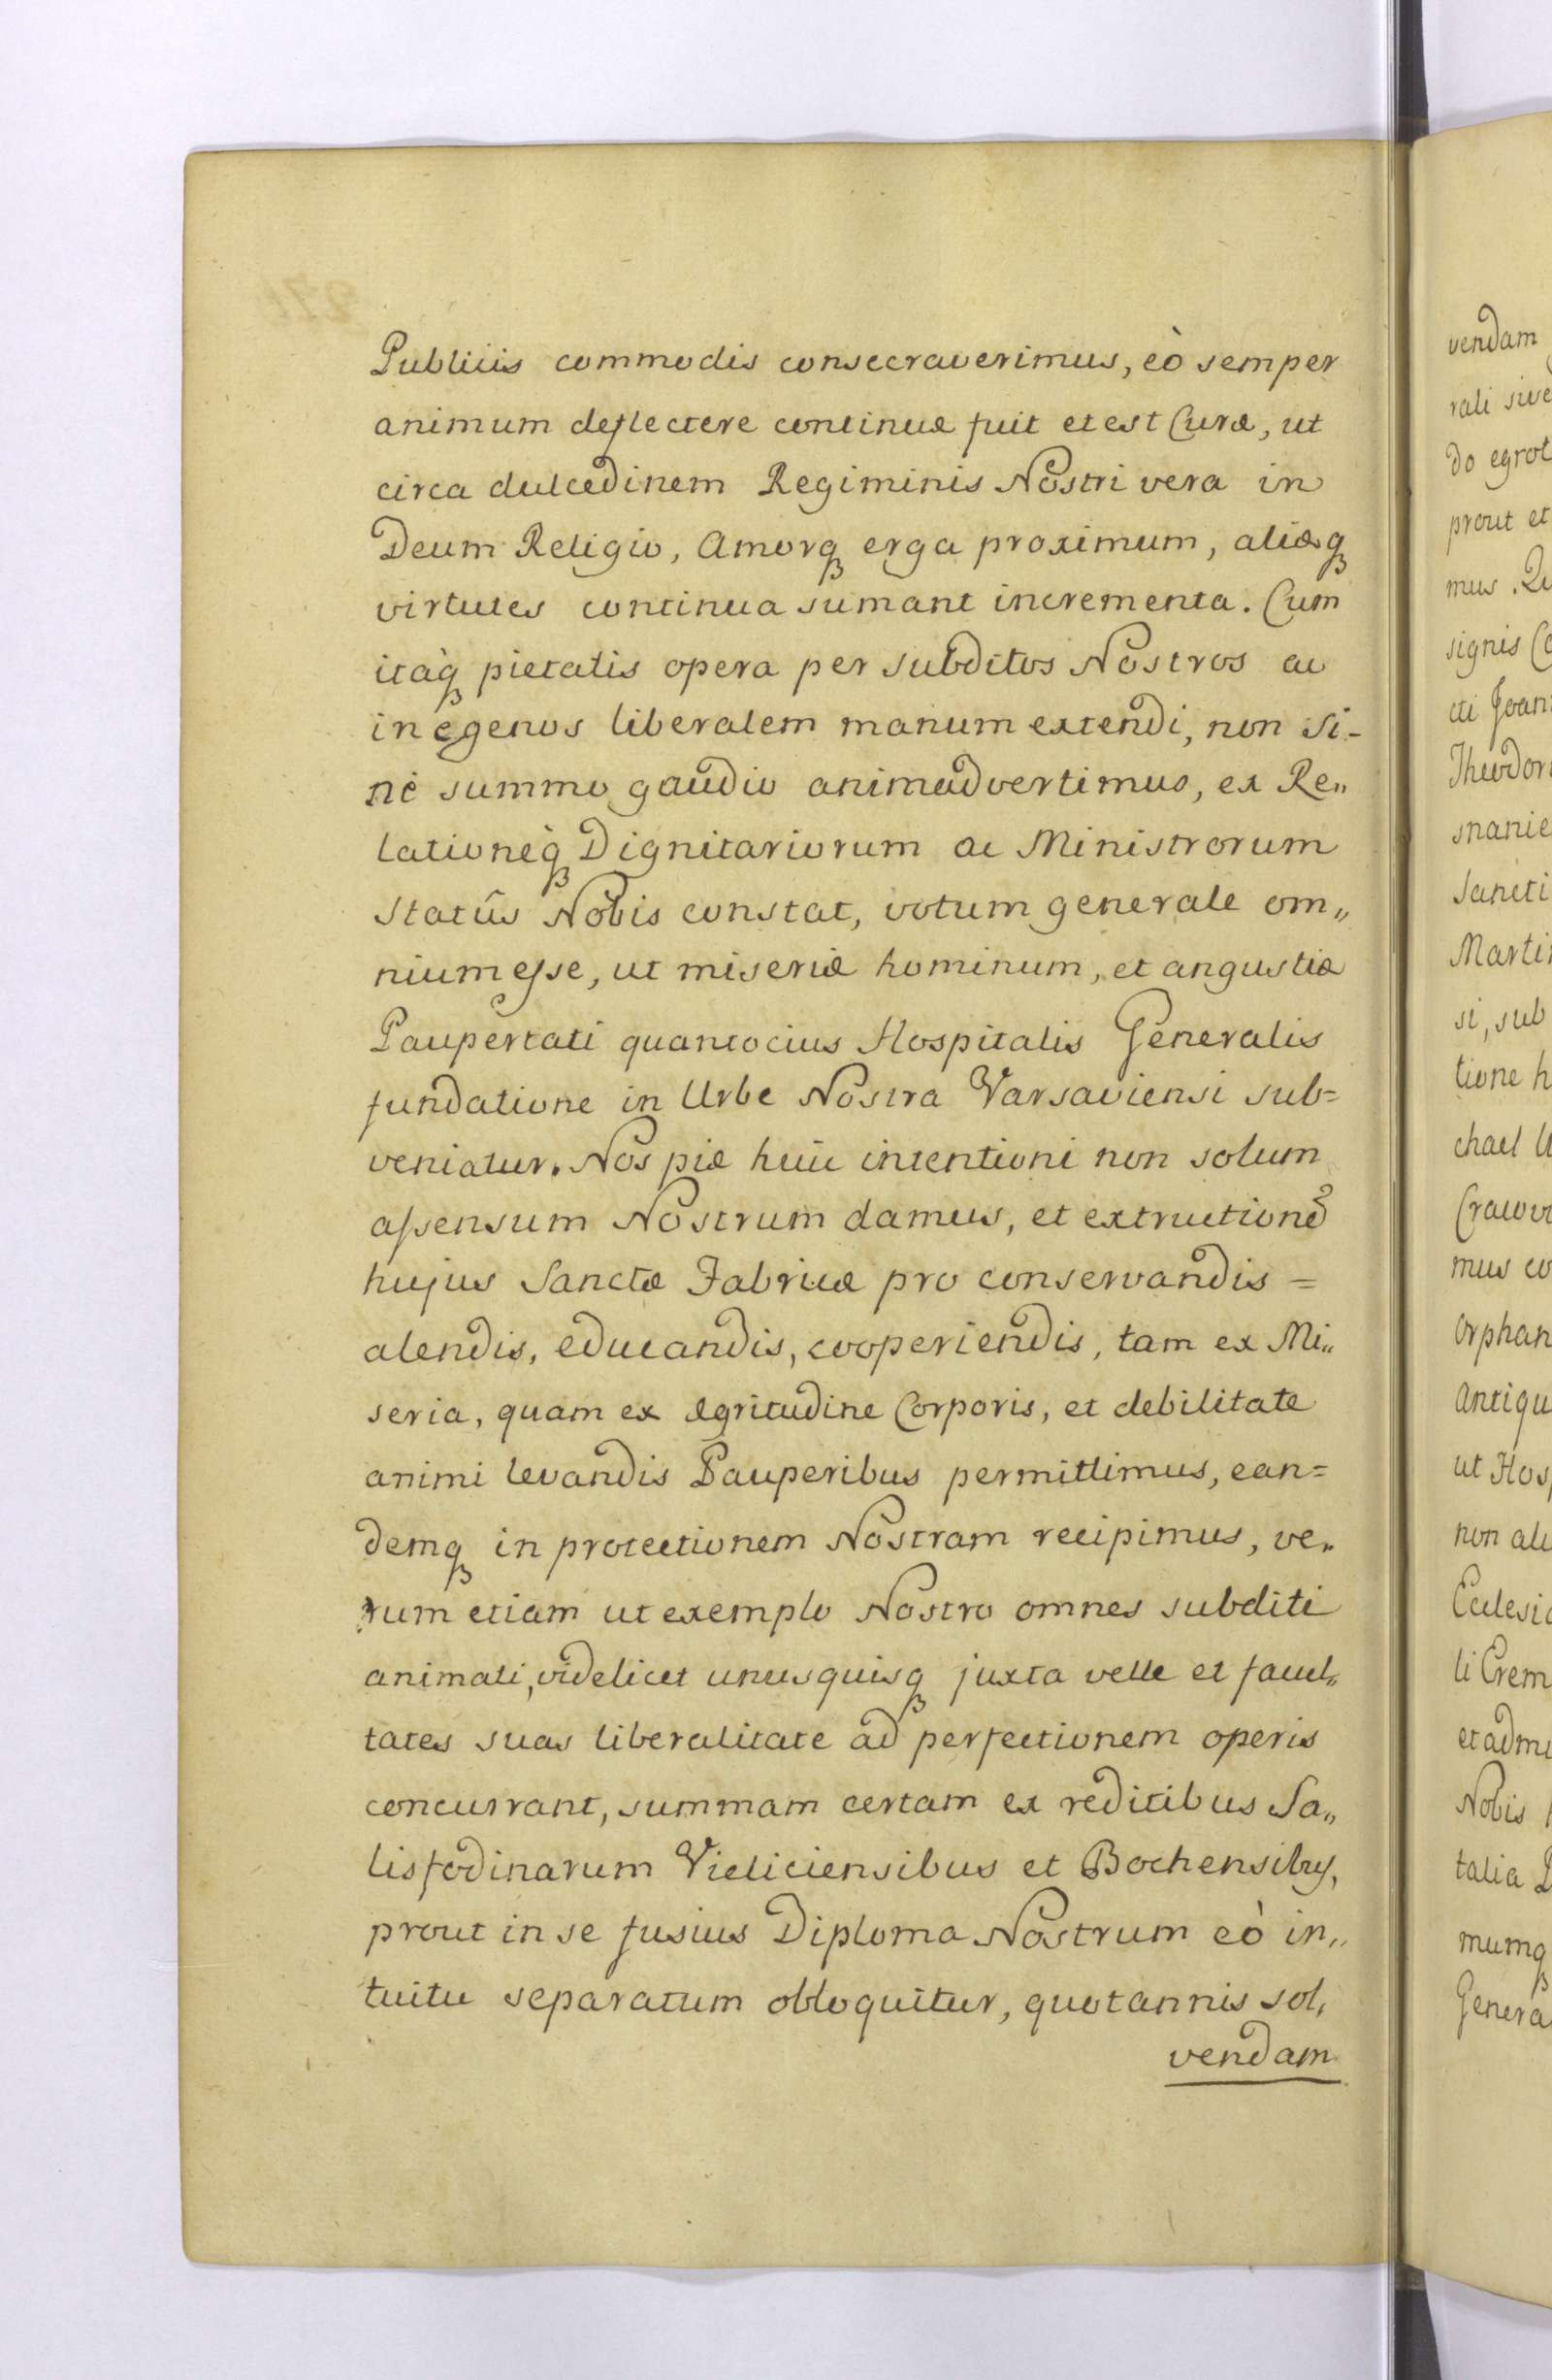 Publicis commodis consecraverimus, eò semper
animum deflectere continuæ fuit et est Curæ, ut
circa dulcedinem Regiminis Nostri vera in
Deum Religio, Amorq erga proximum, aliæq
virtutes continua sumant incrementa. Cum
itàq pietatis opera per subditos Nostros ac
in egenos liberalem manum extendi, non si-
nè summo gaudio animadvertimus, ex Re„
lationèq Dignitariorum ac Ministrorum
statûs Nobis constat, votum generale om„
nium esse, ut miseriæ hominum, et angustiæ
Paupertati quantocius Hospitalis Generalis
fundatione in Urbe Nostra Varsaviensi sub=
veniatur. Nos piæ huic intentioni non solum
assensum Nostrum damus, et extructionē
hujus Sanctæ Fabricæ pro conservandis =
alendis, educandis, cooperiendis, tam ex Mi„
seria, quam ex ægritudine Corporis, et debilitate
animi levandis Pauperibus permittimus, ean=
demq in protectionem Nostram recipimus, ve„
rum etiam ut exemplo Nostro omnes subditi
animati, videlicet unusquisq juxta velle et facul„
tates suas liberalitate ad perfectionem operis
concurrant, summam certam ex reditibus Sa„
lisfodinarum Vieliciensibus et Bochensibus,
prout in se fusius Diploma Nostrum eò in„
tuitu separatum obloquitur, quotannis sol,
vendam
vendam
rali sive
do egrot
prout et
mus. Qu
signis Co
cti Joan
Theodor
snanie
Sancti
Marti
si, sub
tione h
chael
Cracov
mus co
orphan
Antiqu
ut Hos
non ali
Ecclesi
li Crem
et admi
Nobis
talia
mumq
Genera